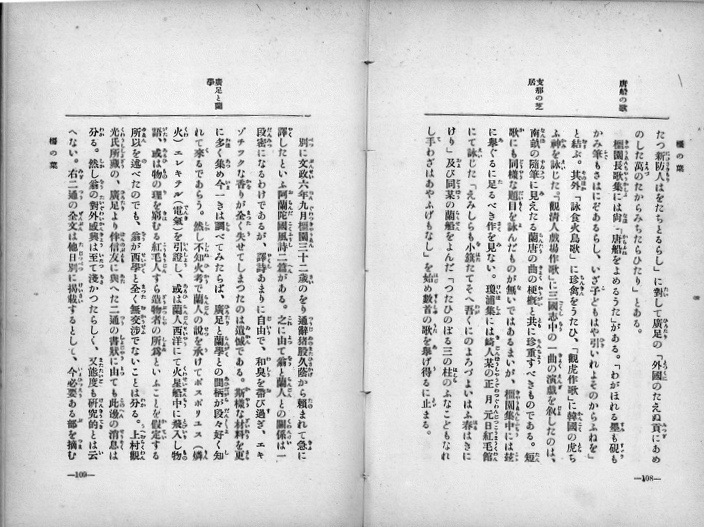 橿の葉
唐船の歌
たつ新防人はをたちとるらし」に對して廣足の「外國のたえぬ貢にあめ
のした萬のたからみちたらひたり」とある。
橿園長歌集には尙「唐船をよめるうた」がある。「わがほれる墨も硯も
かみ筆もさはにぞあるらし、いざ子どもはや引いれよそのからふねを」
と結ぶ。其外「詠食火鳥歌」に珍禽をうたひ、「觀虎作歌」に韓國の虎ち
支那の芝
居
ふ神を詠じた。「觀淸人戲場作歌」に三國志中の一曲の演戲を敍したのは、
南畝の隨筆に見えたる蘭館の曲の梗槪と共に珍重すべきものである。短
歌にも同樣な題目を詠んだものが無いではあるまいが、橿園集中には玆
に擧ぐるに足るべき作を見ない。瓊浦集には崎人某の正月元日紅毛館
にて詠じた「えみしらも小簱たてそへ吾くにのよろづよいはふ春はきに
けり」及び同某の蘭船をよんだ「つたひのぼる三の柱のふなこどもなれ
し手わざはあやふげもなし」を始め數首の歌を擧げ得るに止まる。
—108—
廣足と蘭
學
別に文政六年九月橿園三十二歲のをり通辭猪股久藏から賴まれて急に
譯したといふ阿蘭陀國風詩二篇がある。之に由て翁と蘭人との關係は一
段密になるわけであるが、譯詩あまりに自由で、和臭を帶び過ぎ、エキ
ゾチックな香りが全く失せてしまつたのは遺憾である。斯樣な材料を更
に多く集め今一きは調べてみたらば、廣足と蘭學との間柄が段々好く知
れて來るであらう。然し不知火考で蘭人の說を承けてポスポリユス(燐
火)エレキテル(電氣)を引證し、或は蘭人西洋にて火星船中に飛入し物
語、或は物の理を窮むる紅毛人すら造物者の所爲といふことを假定する
所以を述べたのでも、翁が西學と全く無交涉でないことは分る。上村觀
光氏所藏の、廣足より伴信友に與へた二通の書狀に由ても此邊の消息は
分る。然し翁の對外感興は至て淺かつたらしく、又態度も硏究的とは云
へない。右二通の全文は他日別に揭載するとして、今必要ある部を摘む
橿の葉
—109—